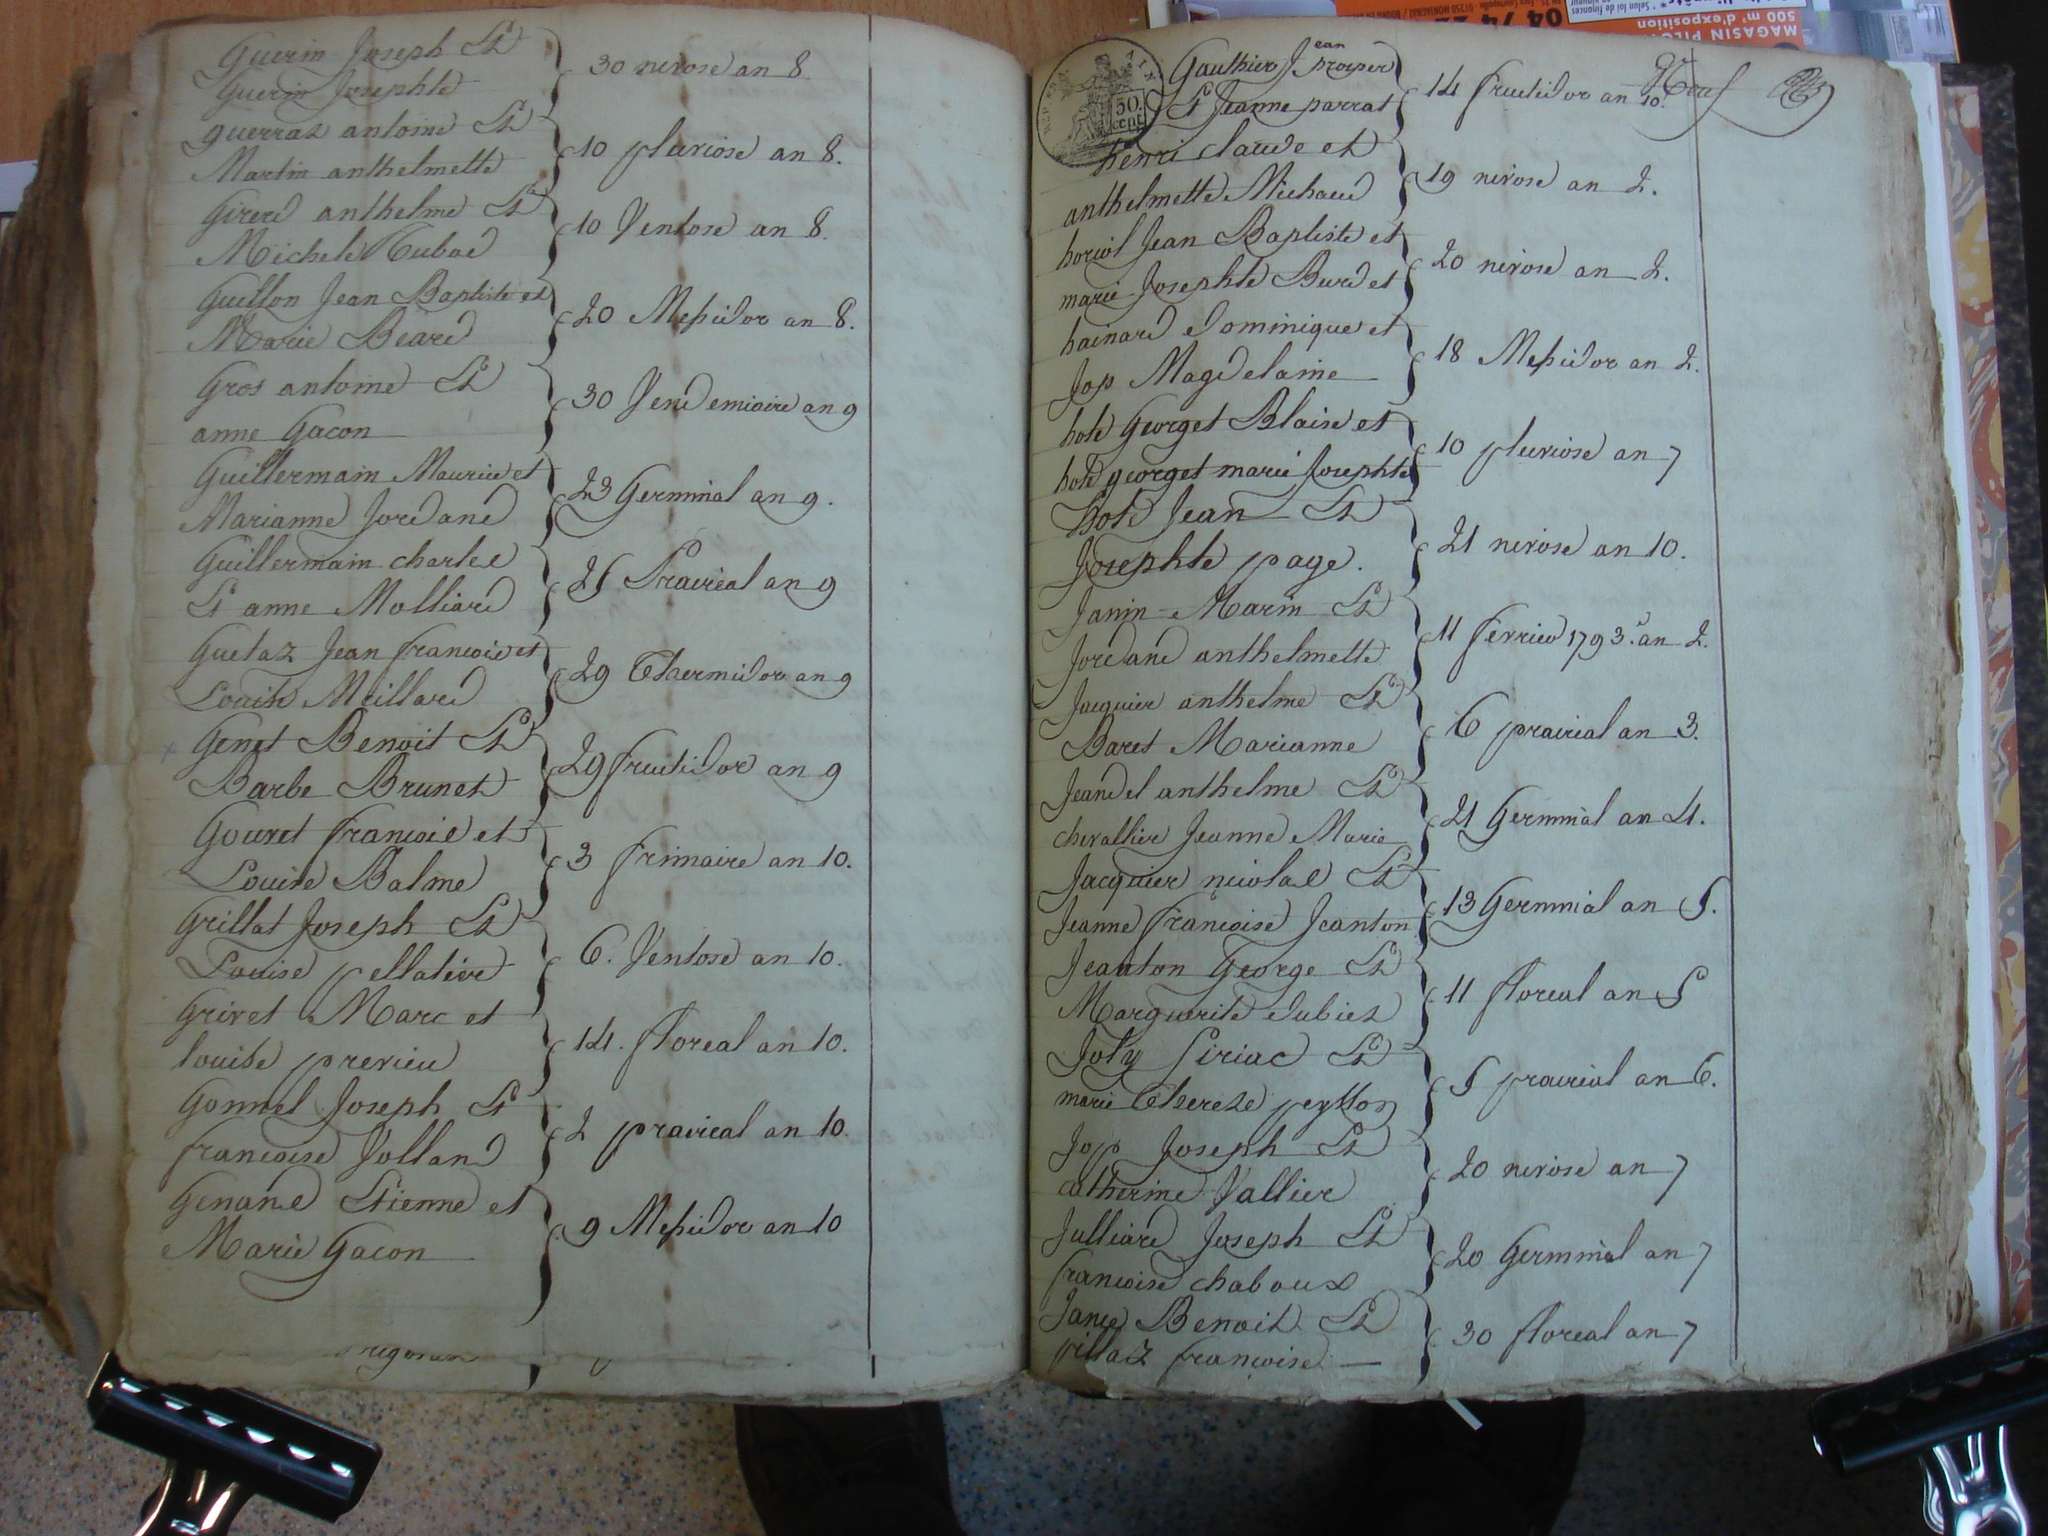 Guerin Joseph Et
Guerin Josephte
30 nivose an 8
guerraz antoine Et
Martin anthelmette
10 pluviose an 8.
Girerd anthelme Et
Michele Cubod
10 Ventose an 8.
Guillon Jean Baptiste et
Marie Beard
20 Messidor an 8.
Gros antoine Et
anne Gacon
30 Vendemiaire an 9
Guillermain Maurice et
Marianne Jordand
23 Germinal an 9.
Guillermain charles
Et anne Molliard
25 Prairial an 9
Guetaz Jean francois et
Louise Meillard
29 Thermidor an 9
Genet Benoit Et
Barbe Brunet
29 fructidor an 9
Gouret francois et
Louise Balme
3 frimaire an 10.
Grillat Joseph Et
Louise pellatiere
6. Ventose an 10.
Grivet Marc et
louise prenieu
14. floreal an 10.
Gonnel Joseph Et
francoise Volland
2 prairial an 10.
Genand Etienne et
Marie Gacon
9 Messidor an 10
Gauthier Jean prosper
Et Jeanne parrat
14 fructidor an 10.
50.
cent
henri claude et
anthelmette Michaud
19 nivose an 2.
horiol Jean Baptiste et
marie Josephte Burd et
20 nivose an 2.
hainard dominique et
Jop Magdelaine
18 Messidor an 2.
hote Georget Blaise et
hote georget marie Josephte
10 pluviose an 7
hote Jean Et
Josephte page.
21 nivose an 10.
Janin Marin Et
Jordand anthelmette
11 fevrier 1793. an 2.
Jacquier anthelme Et
Baret Marianne
6 prairial an 3.
Jeandel anthelme Et
chevallier Jeanne Marie
21 Germinal an 4.
Jacquier nicolas Et
Jeanne francoise Jeanton
13 Germinal an 5.
Jeanton George Et
Marguerite dubiez
11 floreal an 5
Joly Siriac Et
marie Therese peysson
5 prairial an 6.
Jop Joseph Et
catherine Vallier
20 nivose an 7
Julliard Joseph Et
francoise chaboux
20 Germinal an 7
Jance Benoit Et
pillaz francoise
30 floreal an 7
MAGASIN PILO
500 m² d'exposition
04 74 22
* Selon loi de finances